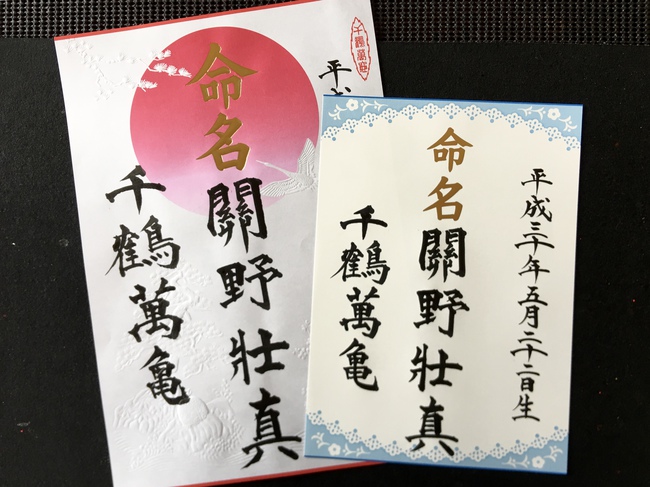 平
命名 關野壯真
千鶴萬亀
平成三十年五月二十二日生
命名 關野壯真
千鶴萬亀